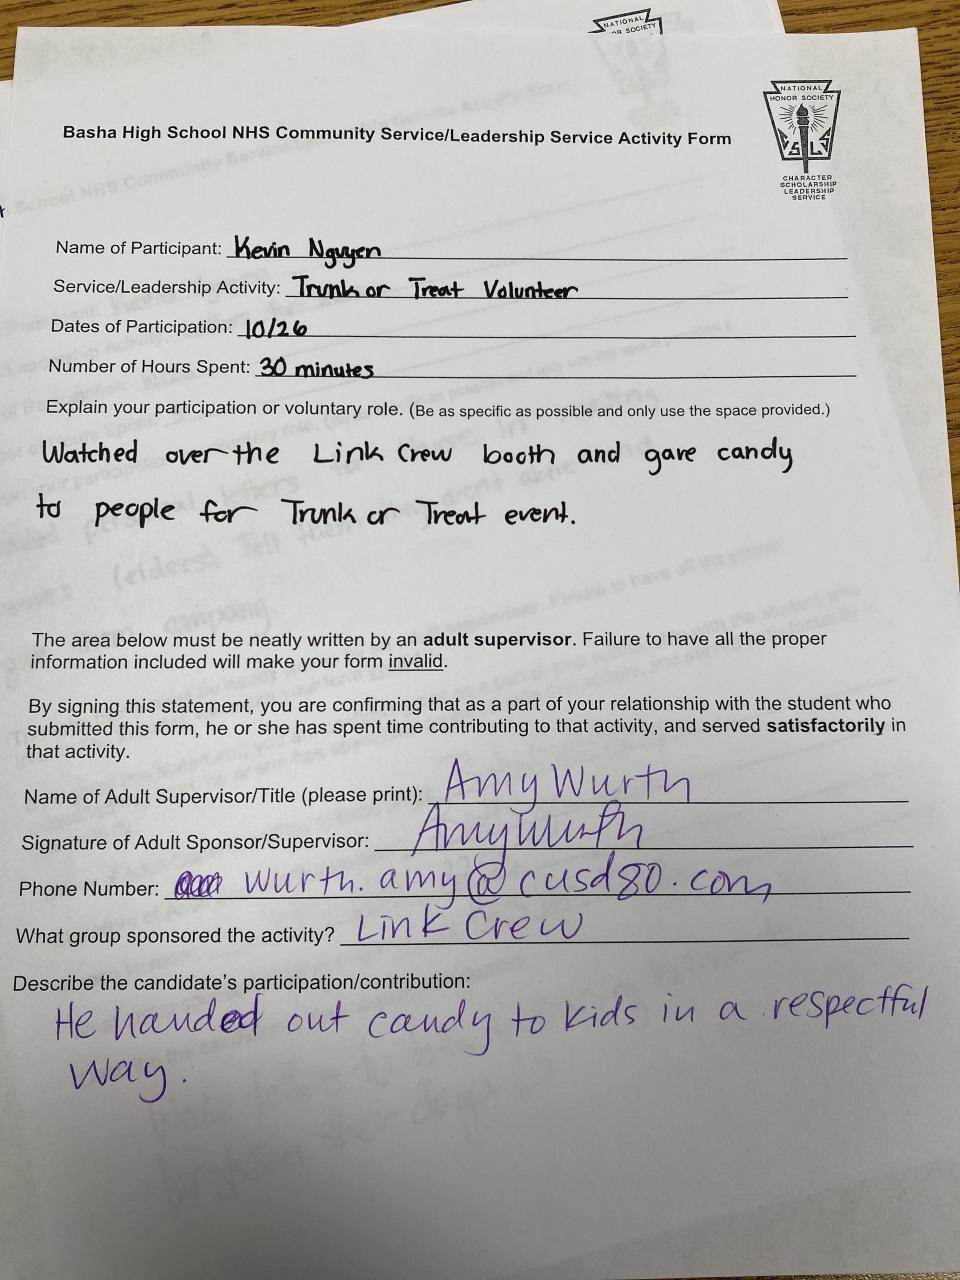 NATIONAL
HONOR SOCIETY
CHARACTER
SCHOLARSHIP
LEADERSHIP
SERVICE
Basha High School NHS Community Service/Leadership Service Activity Form
Name of Participant: Kevin Nguyen
Service/Leadership Activity: Trunk or Treat Volunteer
Dates of Participation: 10/26
Number of Hours Spent: 30 minutes
Explain your participation or voluntary role. (Be as specific as possible and only use the space provided.)
Watched over the Link Crew booth and gave candy
to people for Trunk or Treat event.
The area below must be neatly written by an adult supervisor. Failure to have all the proper
information included will make your form invalid.
By signing this statement, you are confirming that as a part of your relationship with the student who
submitted this form, he or she has spent time contributing to that activity, and served satisfactorily in
that activity.
Name of Adult Supervisor/Title (please print): Amy Wurth
Signature of Adult Sponsor/Supervisor: Amy Wurth
Phone Number: wurth.amy@cusd80.com
What group sponsored the activity? Link Crew
Describe the candidate's participation/contribution:
He handed out candy to kids in a respectful
way.